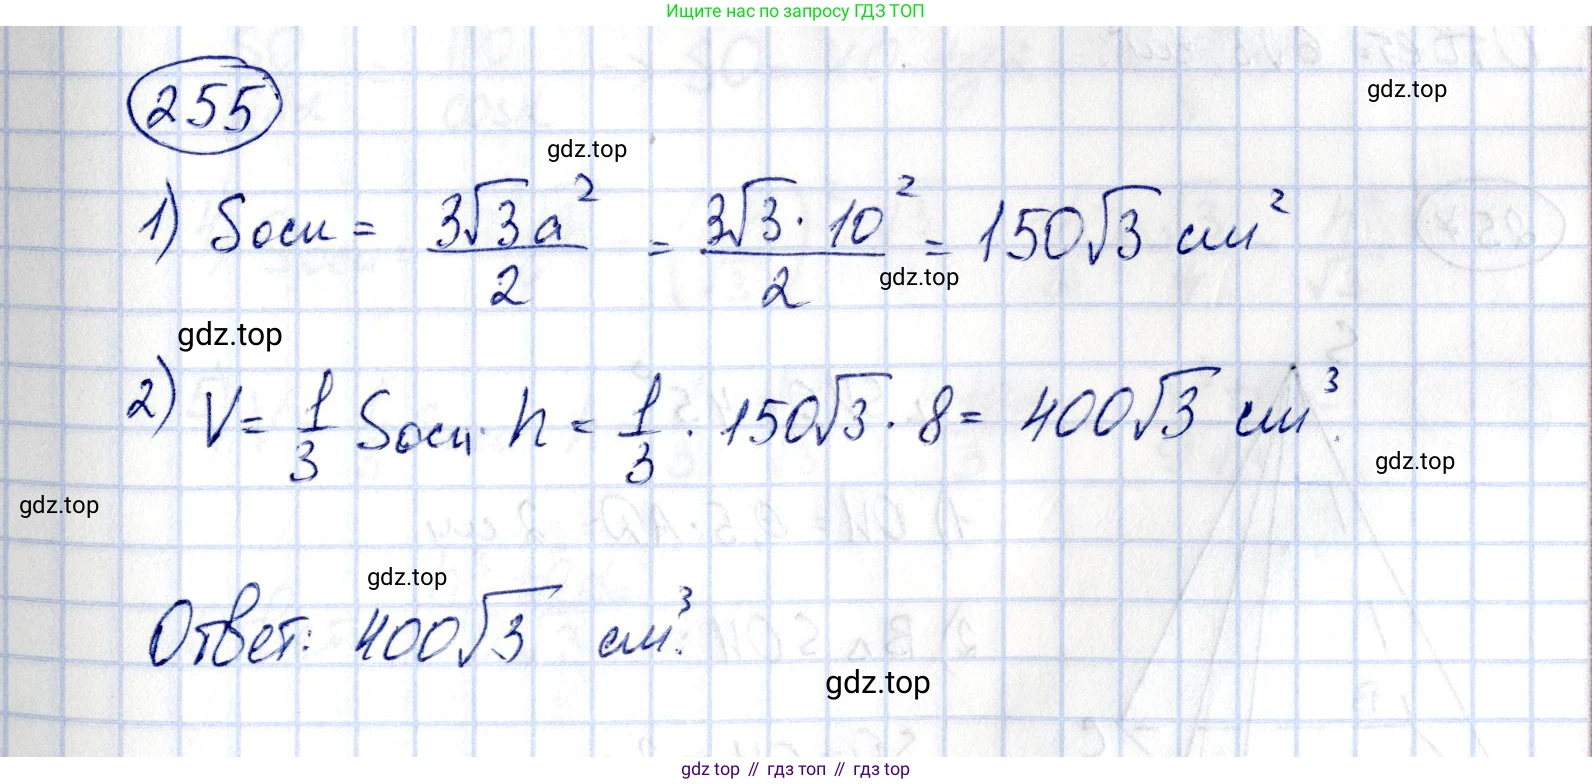 Ищите нас по запросу ГДЗ ТОП
gdz.top
255
gdz.top
1) Sосн = 3√3a²/2 = 3√3·10²/2 = 150√3 см²
gdz.top
gdz.top
2) V = 1/3 Sосн · h = 1/3 · 150√3 · 8 = 400√3 см³.
gdz.top
gdz.top
gdz.top
Ответ: 400√3 см³.
gdz.top
gdz top // гдз топ // гдз top